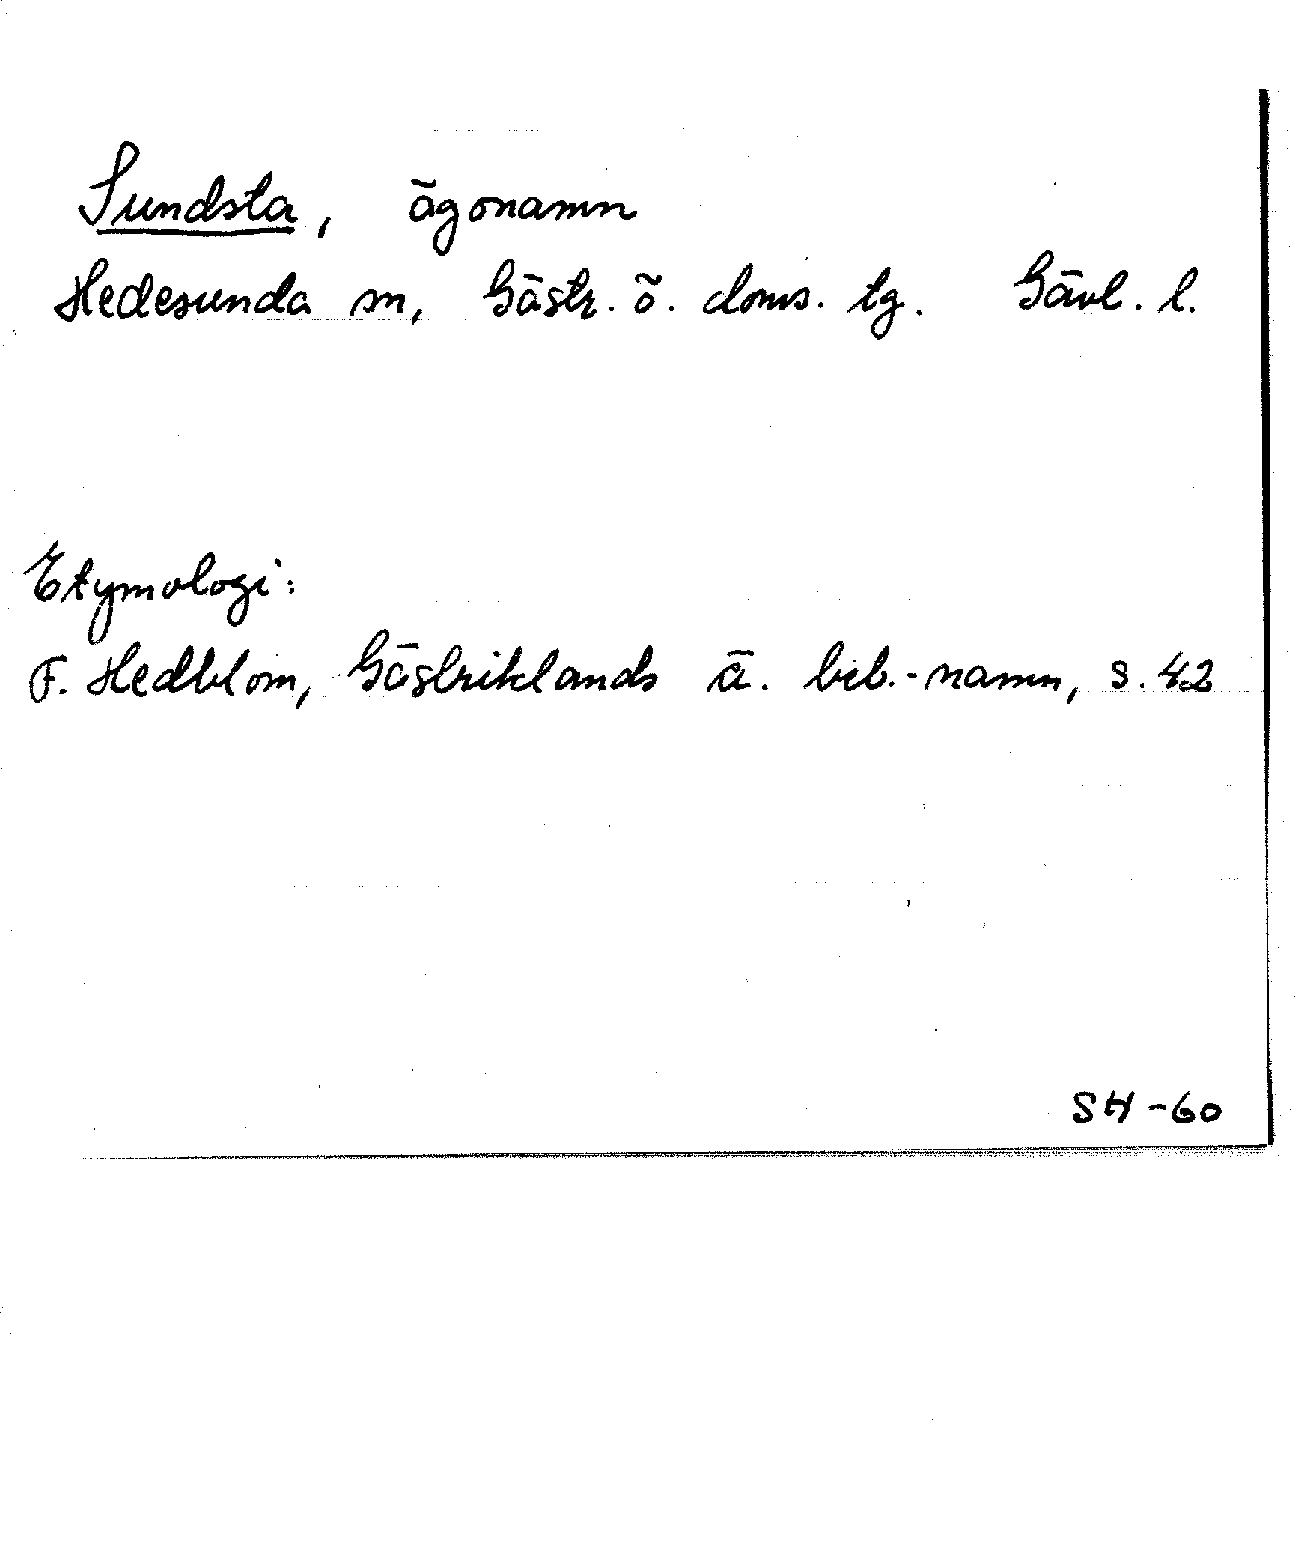 Sundsta, ägonamn
Hedesunda sn, Gästr. ö. doms. tg. Gävl. l.
Etymologi:
F. Hedblom, Gästriklands ä. beb.-namn, s. 42
SH -60